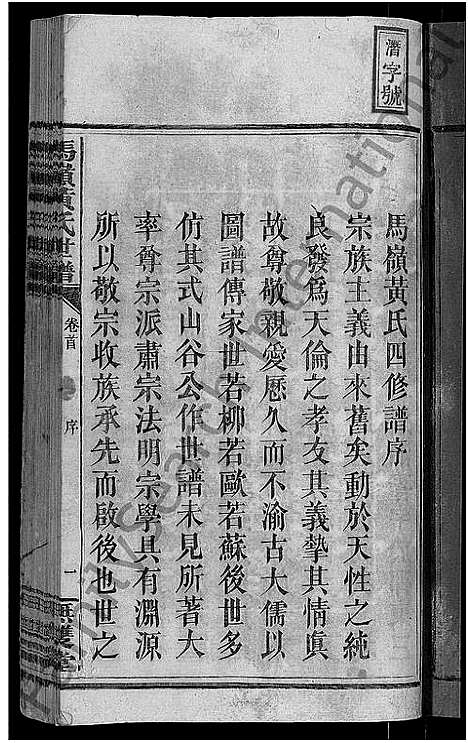 潛字號
馬嶺黃氏四修譜序
宗族主義由來舊矣動於天性之純
良發爲天倫之孝友其義摯其情眞
故尊敬親愛歷久而不渝古大儒以
圖譜傳家世若柳若歐若蘇後世多
仿其式山谷公作世譜未見所著大
率尊宗派肅宗法明宗學具有淵源
所以敬宗收族承先而啟後也世之
馬嶺黃氏世譜 卷首 序 一
FamilySearch International